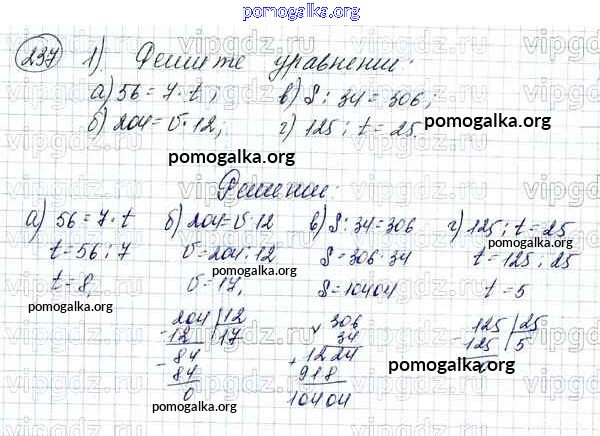 pomogalka.org
237 1). Решите уравнении:
а) 56 = 7 · t; в) S : 34 = 306;
б) 204 = v · 12; г) 125 : t = 25
pomogalka.org
pomogalka.org
Решении:
а) 56 = 7 · t б) 204 = v · 12 в) S : 34 = 306 г) 125 : t = 25
t = 56 : 7 v = 204 : 12 S = 306 · 34 t = 125 : 25
pomogalka.org pomogalka.org
t = 8, v = 17, S = 10404 t = 5
pomogalka.org
204 | 12 306 125 | 25
- 12 | 17 × 34 - 125 | 5
- 84 1224 0
84 + 918
0 10404
pomogalka.org
pomogalka.org
vipgdz.ru